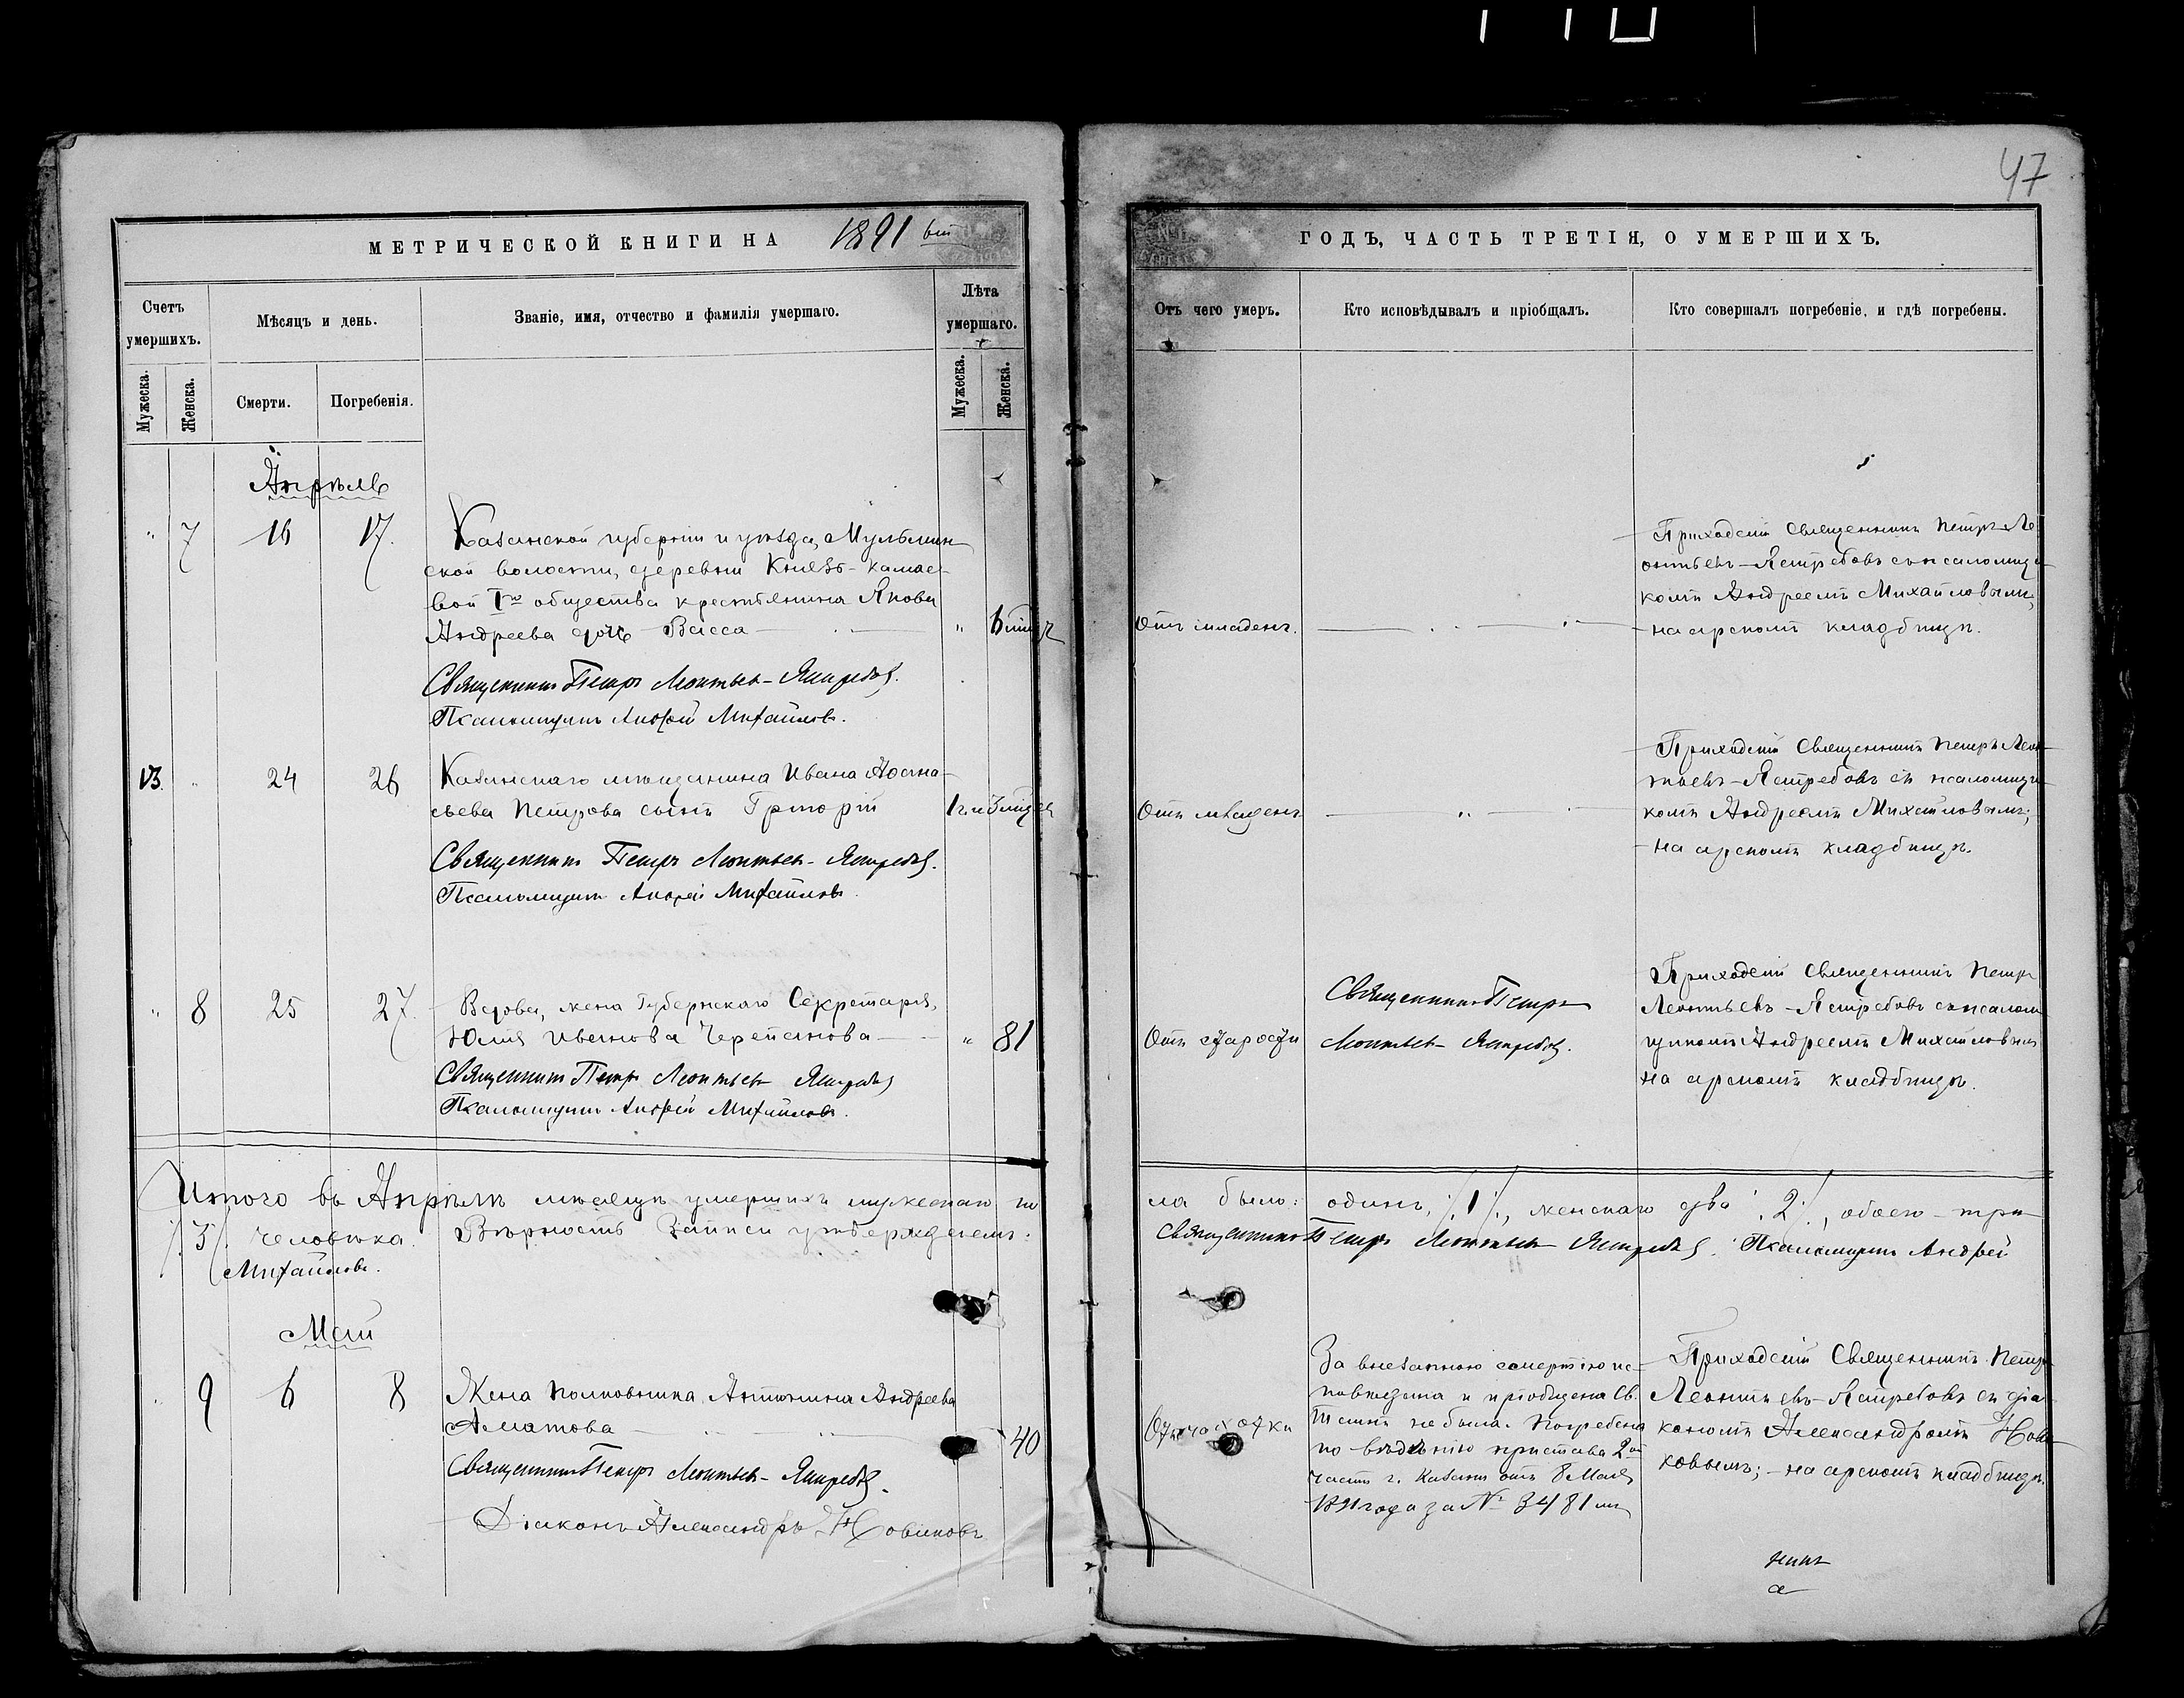 47
МЕТРИЧЕСКОЙ КНИГИ НА 1891 ый
ГОДЪ, ЧАСТЬ ТРЕТІЯ, О УМЕРШИХЪ.
Счетъ умершихъ.
Мѣсяцъ и день.
Званіе, имя, отчество и фамилія умершаго.
Лѣта умершаго.
Мужеска.
Женска.
Смерти.
Погребенія.
Мужеска.
Женска.
Отъ чего умеръ.
Кто исповѣдывалъ и пріобщалъ.
Кто совершалъ погребеніе, и гдѣ погребены.
Апрѣль
" 7 16 17.
Казанской губерніи и уѣзда, Мульмин-
ской волости, деревни Князь-Камае-
вой 1го общества крестьянина Якова
Андреева дочь Васса
" 6 мцъ
Священникъ Петръ Леонтьев-Ястребов.
Псаломщикъ Андрей Михайловъ.
Отъ младен.
Приходскій Священникъ Петръ Ле-
онтьевъ-Ястребовъ съ псаломщи-
комъ Андреемъ Михайловымъ,
на арскомъ кладбищѣ.
13. " 24 26
Казанскаго мѣщанина Ивана Аѳана-
сьева Петрова сынъ Григорій
1 г. и 3 мцев
Священникъ Петръ Леонтьев-Ястребов.
Псаломщикъ Андрей Михайловъ.
Отъ младен.
Приходскій Священникъ Петръ Леон-
тьевъ-Ястребовъ съ псаломщи-
комъ Андреемъ Михайловымъ;
на арскомъ кладбищѣ.
" 8 25 27.
Вдова, жена Губернскаго Секретаря,
Юлія Иванова Черепанова
" 81
Священникъ Петръ Леонтьев-Ястребов
Псаломщикъ Андрей Михайловъ.
Отъ старости
Священникъ Петръ
Леонтьев-Ястребов.
Приходскій Священникъ Петръ
Леонтьевъ-Ястребовъ съ псалом-
щикомъ Андреемъ Михайловым
на арскомъ кладбищѣ.
Итого въ Апрѣлѣ мѣсяцѣ умершихъ мужескаго по-
ла было: одинъ, /1/, женскаго два /2/, обоего - три
/3/ человѣка. Вѣрность записи утверждаемъ:
Священникъ Петръ Леонтьев-Ястребов. Псаломщикъ Андрей
Михайловъ.
Май
" 9 6 8
Жена Полковника Антонина Андреева
Аматова
40
Священникъ Петръ Леонтьев-Ястребов.
Діаконъ Александръ Новиковъ
Отъ чахотки
За внезапною смертію ис-
повѣдана и пріобщена Св.
Таинъ не была. Погребена
по вѣдѣнію пристава 2ой
части г. Казани отъ 8 Мая
1891 года за № 3481 мъ
Приходскій Священникъ Петръ
Леонтьевъ-Ястребовъ съ діа-
кономъ Александромъ Нови-
ковымъ; на арскомъ кладбищѣ.